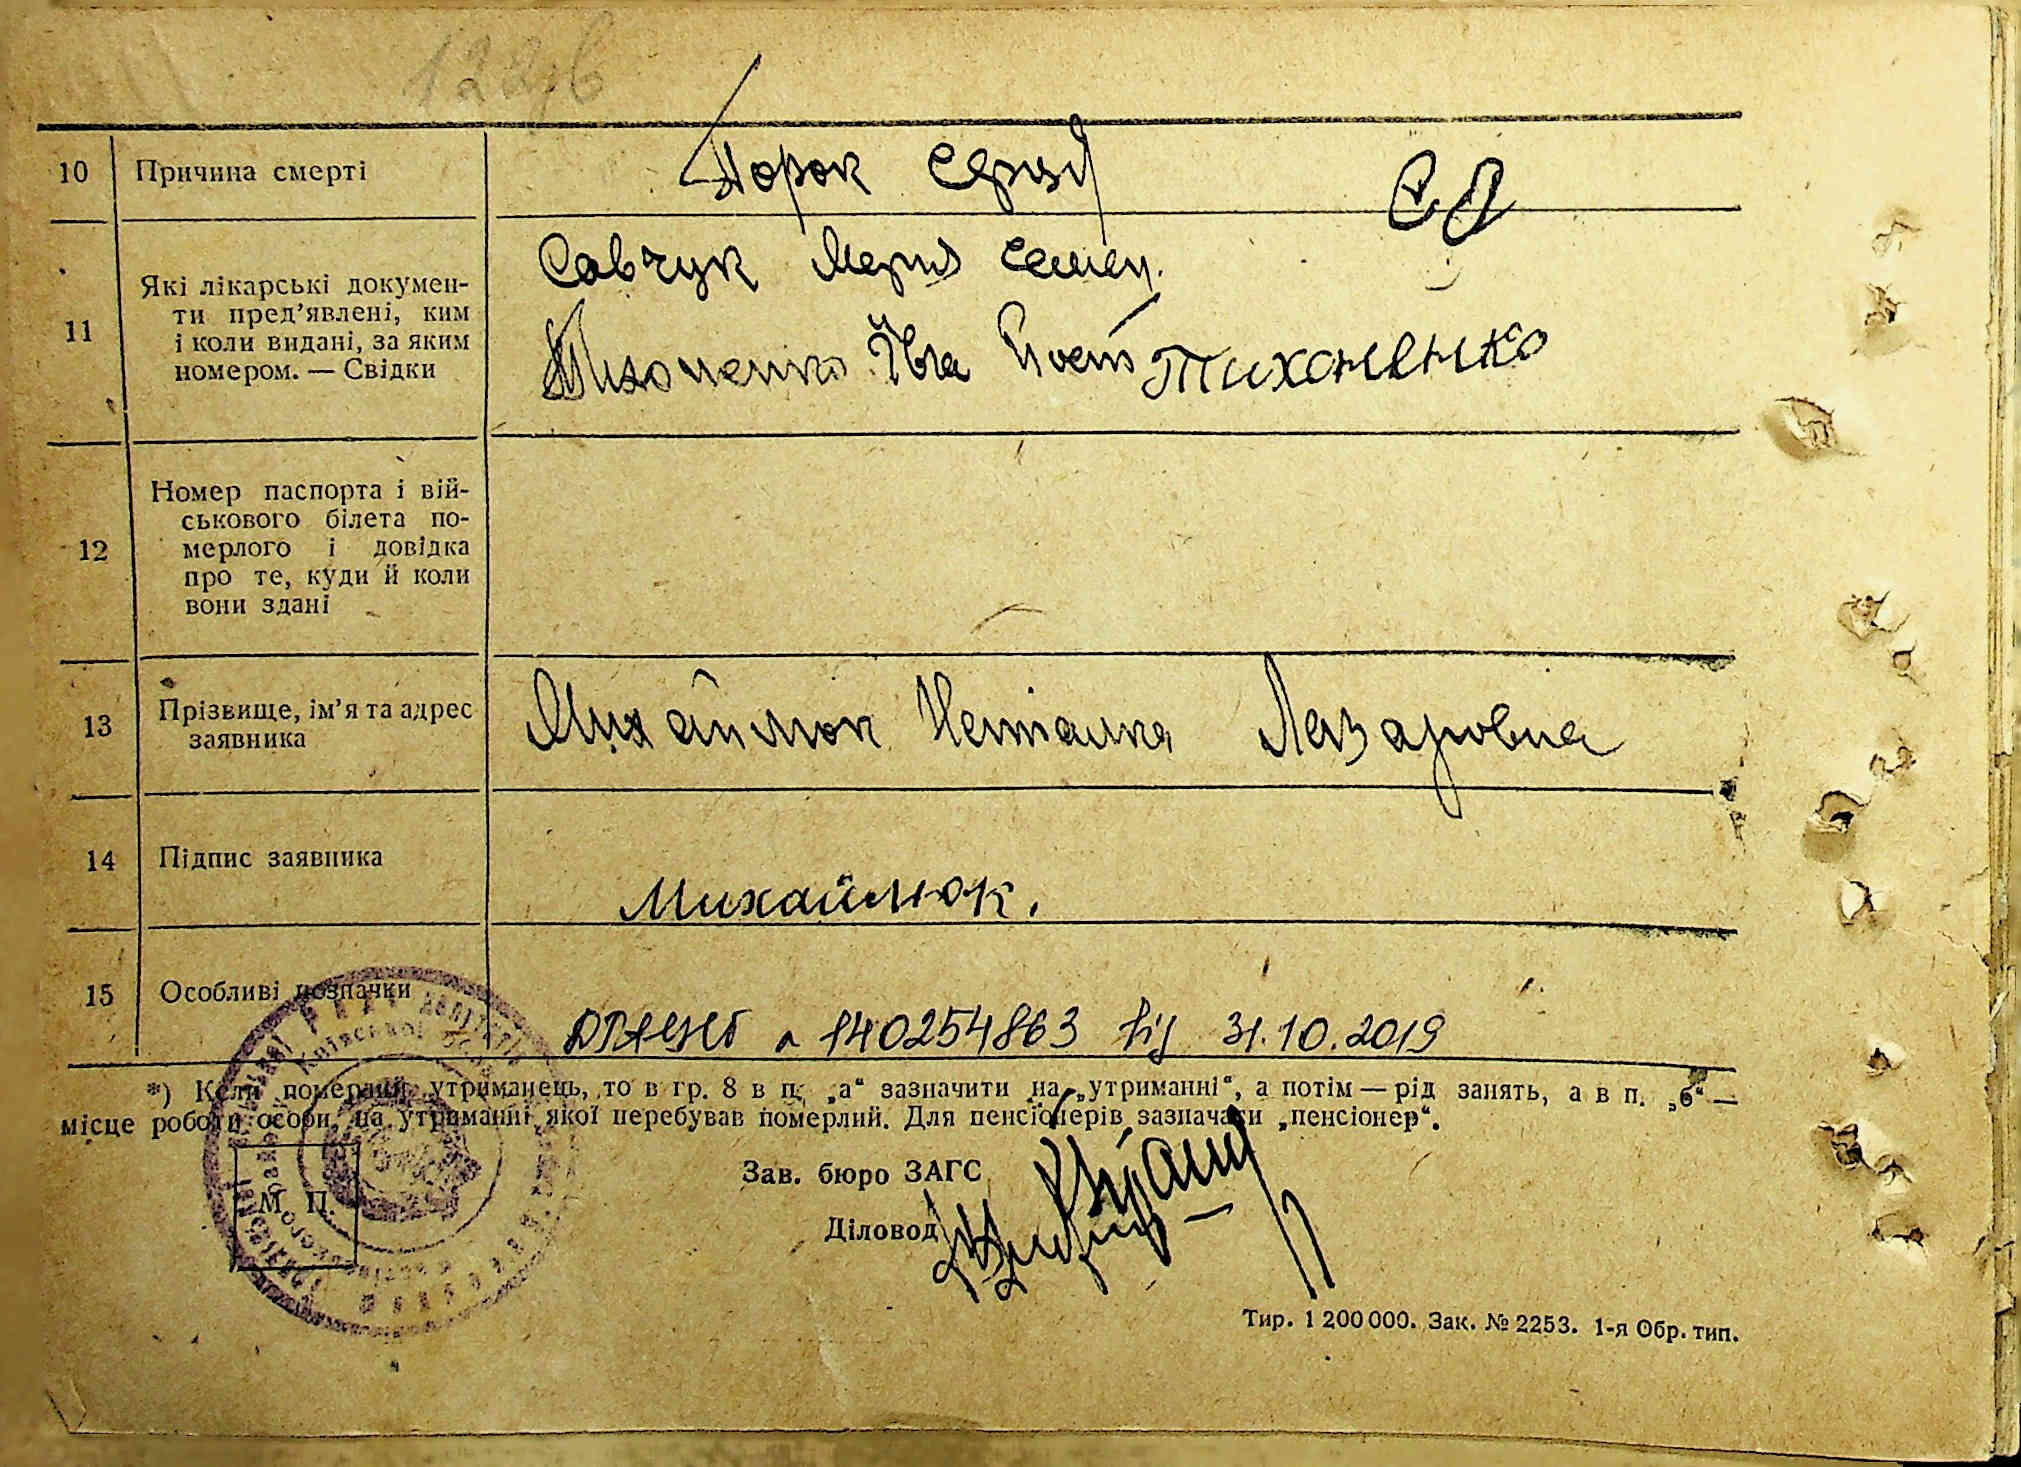 10 Причина смерті Порок серця
11 Які лікарські докумен-
ти пред’явлені, ким
і коли видані, за яким
номером. — Свідки
Савчук Мария Семен.
Тихоненко Тихоненко
12 Номер паспорта і вій-
ськового білета по-
мерлого і довідка
про те, куди й коли
вони здані
13 Прізвище, ім’я та адрес
заявника
Михайлюк Наталка Лазаровна
14 Підпис заявника
Михайлюк.
15 Особливі позначки
140254863 від 31.10.2019
*) Коли померлий утриманець, то в гр. 8 в п. „а“ зазначити на „утриманні“, а потім — рід занять, а в п. „б“ —
місце роботи особи, на утриманні якої перебував померлий. Для пенсіонерів зазначати „пенсіонер“.
Зав. бюро ЗАГС
Діловод
М. П.
Тир. 1 200 000. Зак. № 2253. 1-я Обр. тип.